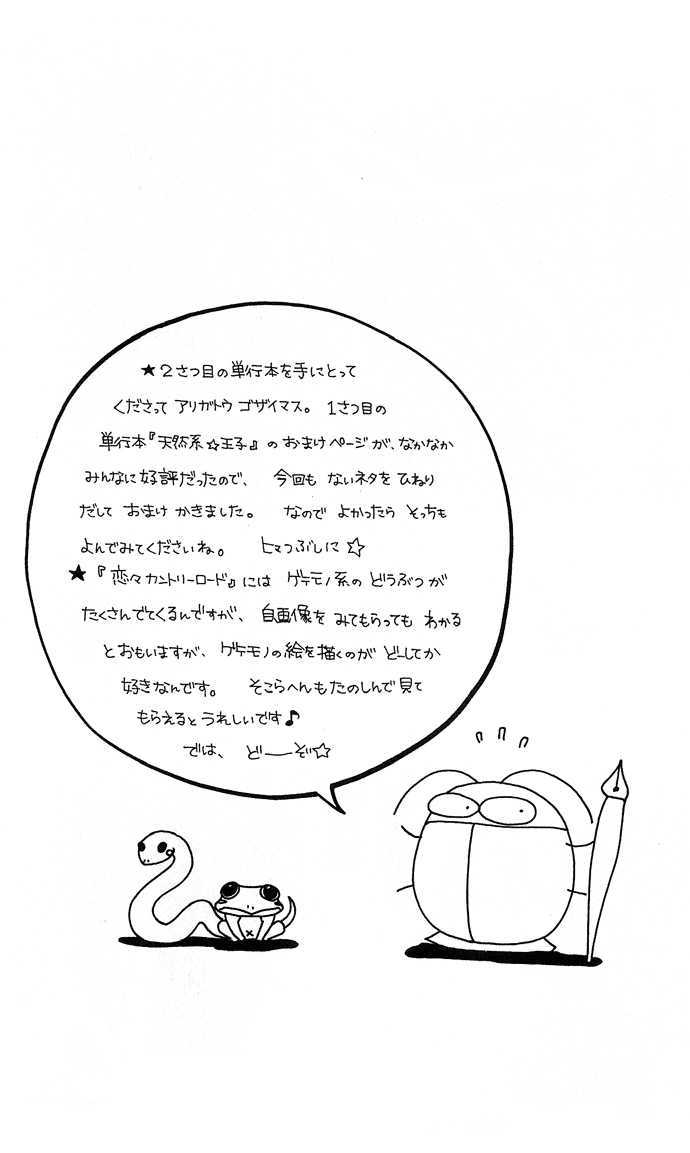 ★2さつ目の単行本を手にとって
くださって アリガトウ ゴザイマス。 1さつ目の
単行本『天然系☆王子』の おまけページが、なかなか
みんなに好評だったので、 今回も ないネタを ひねり
だして おまけ かきました。 なので よかったら そっちも
よんでみてくださいね。 ヒマつぶしに☆
★『恋々カントリーロード』には ゲテモノ系の どうぶつが
たくさんでてくるんですが、 自画像を みてもらっても わかる
とおもいますが、 ゲテモノの絵を描くのが どーしてか
好きなんです。 そこらへんもたのしんで見て
もらえるとうれしいです♪
では、 ど――ぞ☆